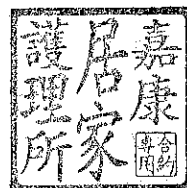 嘉康
居家
護理所
合約
專用